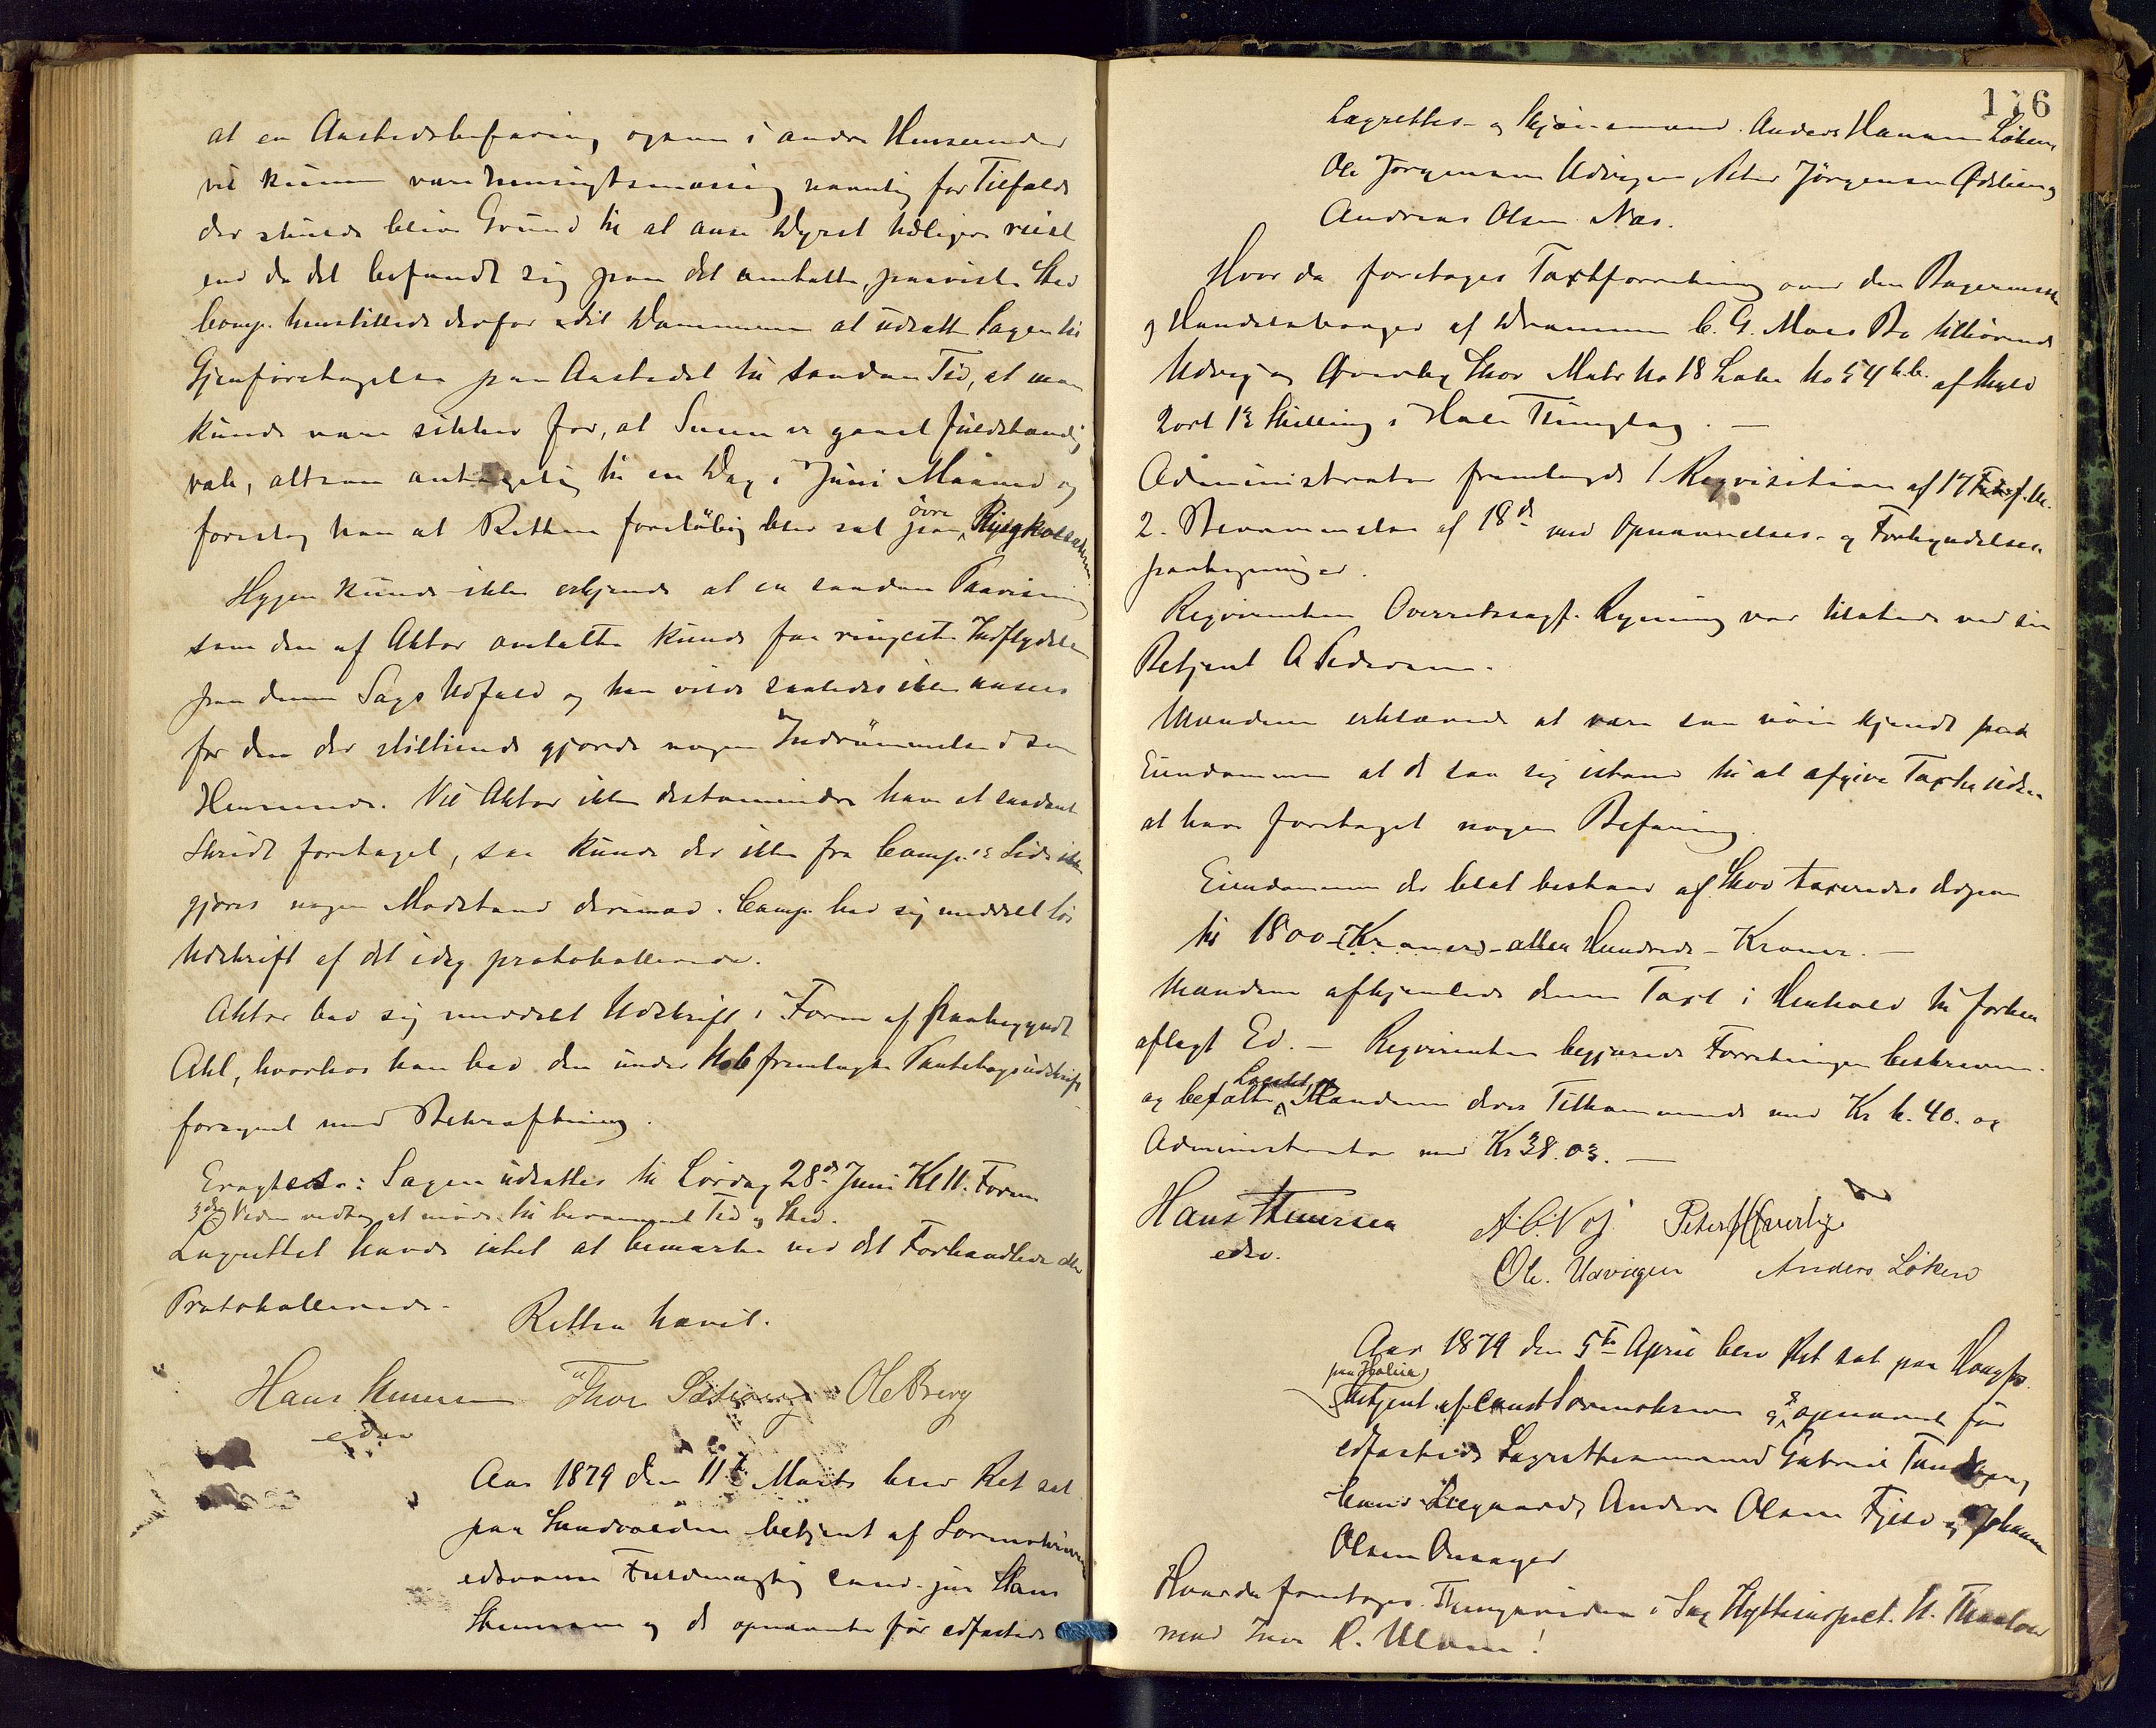 at en Aastedsbefaring ogsaa i andre Henseender
vil kunne være hensigtsmæssig navnlig for Tilfælde
der skulde blive Grund til at anse Dyret tidligere reist
end da det befandt sig paa det omtalte, paaviste Sted
Comp. henstillede derfor til Dommeren at udsætte Sagen til
Gjenforetagelse paa Aastedet til saadan Tid, at man
kunde være sikker for, at Sneen er ganske fuldstændig
væk, altsaa antagelig til en Dag i Juni Maaned og
foreslog han at Retten foreløbig blev sat paa øvre
Hygen kunde ikke erkjende at en saadan Paavisning
som den af Aktor omtalte kunde faa ringeste Indflydelse
paa denne Sags Udfald og han vilde saaledes ikke ansees
for den der stiltiende gjorde nogen Indrømmelse i saa
Henseende. Vil Aktor ikke destomindre have et saadant
Skridt foretaget, saa kunde der ikke fra Comp.s Side ikke
gjøres nogen Modstand derimod. Comp. bad sig meddelt
Udskrift af det idag protokollerede.
Aktor bad sig meddelt Udskrift i Form af paabegyndt
Akt, hvorhos han bad den under No 6 fremlagte Pantebogsudskrift
forsynet med Bekræftning.
Eragtes: Sagen udsættes til Lørdag 28de Juni Kl 11. Form
3die Viden vedtog at møde til berammet Tid og Sted.
Lagrettet havde intet at bemærke ved det Forhandlede eller
Protokollerede.
Retten hævet.
Hans Thuersen Thor Ole Berg
edsv
Aar 1879 den 11te Marts blev Ret sat
paa Sundvolden betjent af Sorenskriverens
edsvorne Fuldmægtig cand. jur Hans
Thuersen og de opnævnte før edfæstede
176
Lagrettes- og Skjønsmænd. Anders Hansen Løken,
Ole Jørgensen Udvigen, Peter Jørgensen Ødelien og
Andreas Olsen Næs.
Hvor da foretages Taxtforretning over den Bagermester
og Handelsborger af Drammen C. G. Moes Bo tilhørende
Udvig og Øverby Skov Matr No 18 Løbe No 54 b.b. af Skyld
2 ort 13 Skilling i Hole Thinglag. —
Administrator fremlagde 1 Reqvisition af 17 f. M.
2. Berammelse af 18de med Opnævnelses- og Forkyndelses
paategninger.
Reqvirenten Overretssagf. Ryning var tilstede ved sin
Betjent A Pedersen.
Mændene erklærede at være saa nøie kjendt paa
Eiendommen at de saa sig istand til at afgive Taxten uden
at have foretaget nogen Befaring.
Eiendommen der blot bestaar af Skov taxeredes dépaa
til 1800 - Kroner - atten Hundrede - Kroner. —
Mændene afhjemlede denne Taxt i Henhold til forhen
aflagt Ed. — Reqvirenten begjærede Forretningen beskreven
og betalte Lagrettet, Mændene deres Tilkommende med Kr 6.40. og
Administrator med Kr 38.03. —
Hans Thuersen
edsv.
Ole. Udvigen Anders Løken
Aar 1879 den 5te April blev Ret sat paa
betjent af const Sorenskriver og opnævnte før
edfæstede Lagrettesmænd Gabriel Tandberg,
Hans Liegaard, Anders Olsen Fjeld og Johan
Olsen Onsager
Hvor da foretoges Thingsviden i Sag Hytteinspect. N. Thaulow
mod Iver R. Ulven!